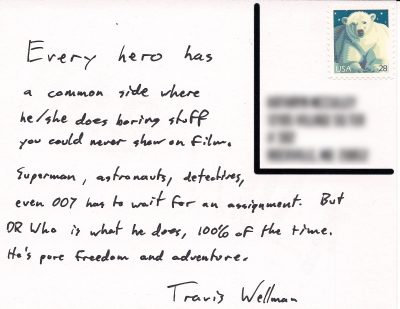 Every hero has
a common side where
he/she does boring stuff
you could never show on film.
Superman, astronauts, detectives,
even 007 has to wait for an assignment. But
DR Who is what he does, 100% of the time.
He's pure freedom and adventure.
Travis Wellman
USA 28